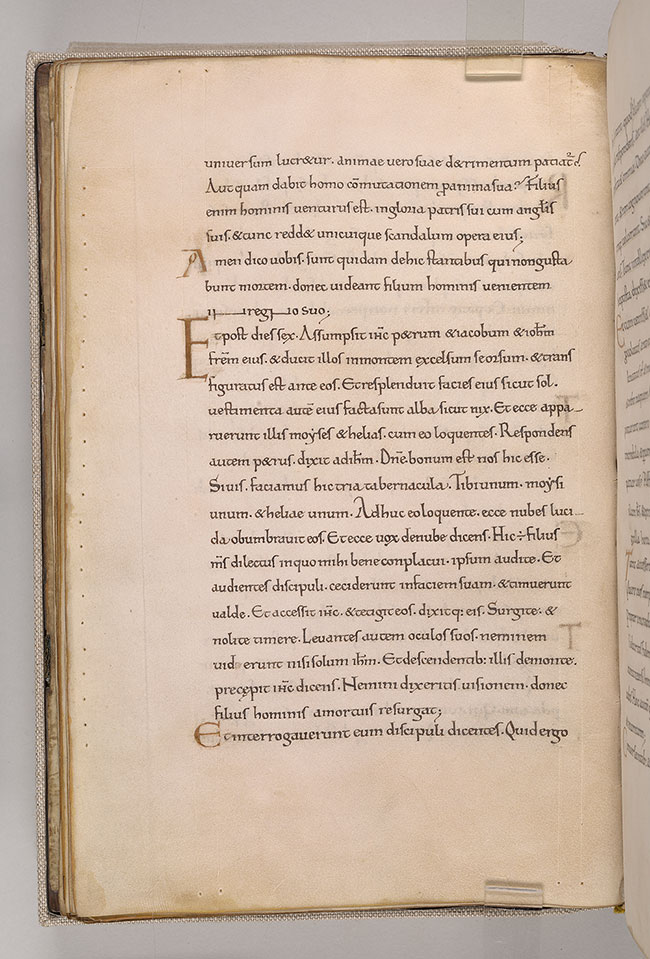 uniuersum lucr&ur. animae uero suae d&rimentum patiat̃.
Aut quam dabit homo cōmutationem p anima sua? Filius
enim hominis uenturus est. in gloria patris sui cum angl̄is
suis. & tunc redd& unicuique scandalum opera eius;
Amen dico uobis. sunt quidam de hic stantibus qui non gusta
bunt mortem. donec uideant filium hominis uenientem
in regno suo;
Et post dies sex. Assumpsit ihc̄ p&rum & iacobum & ioh̄m
fr̄em eius. & ducit illos in montem excelsum seorsum. & trans
figuratus est ante eos. Et resplenduit facies eius sicut sol.
uestimenta autē eius facta sunt alba sicut nix. Et ecce appa-
ruerunt illis moẏses & helias. cum eo loquentes. Respondens
autem p&rus. dixit ad ih̄m. Dn̄e bonum est nos hic esse.
Si uis. faciamus hic tria tabernacula. Tibi unum. moẏsi
unum. & heliae unum. Adhuc eo loquente. ecce nubes luci-
da obumbrauit eos. Et ecce uox de nube dicens. Hic ÷ filius
m̄s dilectus in quo mihi bene complacui. ipsum audite. Et
audientes discipuli. ceciderunt in faciem suam. & timuerunt
ualde. Et accessit ihc̄. & tetigit eos. dixitq: eis. Surgite. &
nolite timere. Leuantes autem oculos suos. neminem
uiderunt nisi solum ih̄m. Et descendentib: illis de monte.
precępit ihc̄ dicens. Nemini dixeritis uisionem. donec
filius hominis a mortuis resurgat;
Et interrogauerunt eum discipuli dicentes. Quid ergo